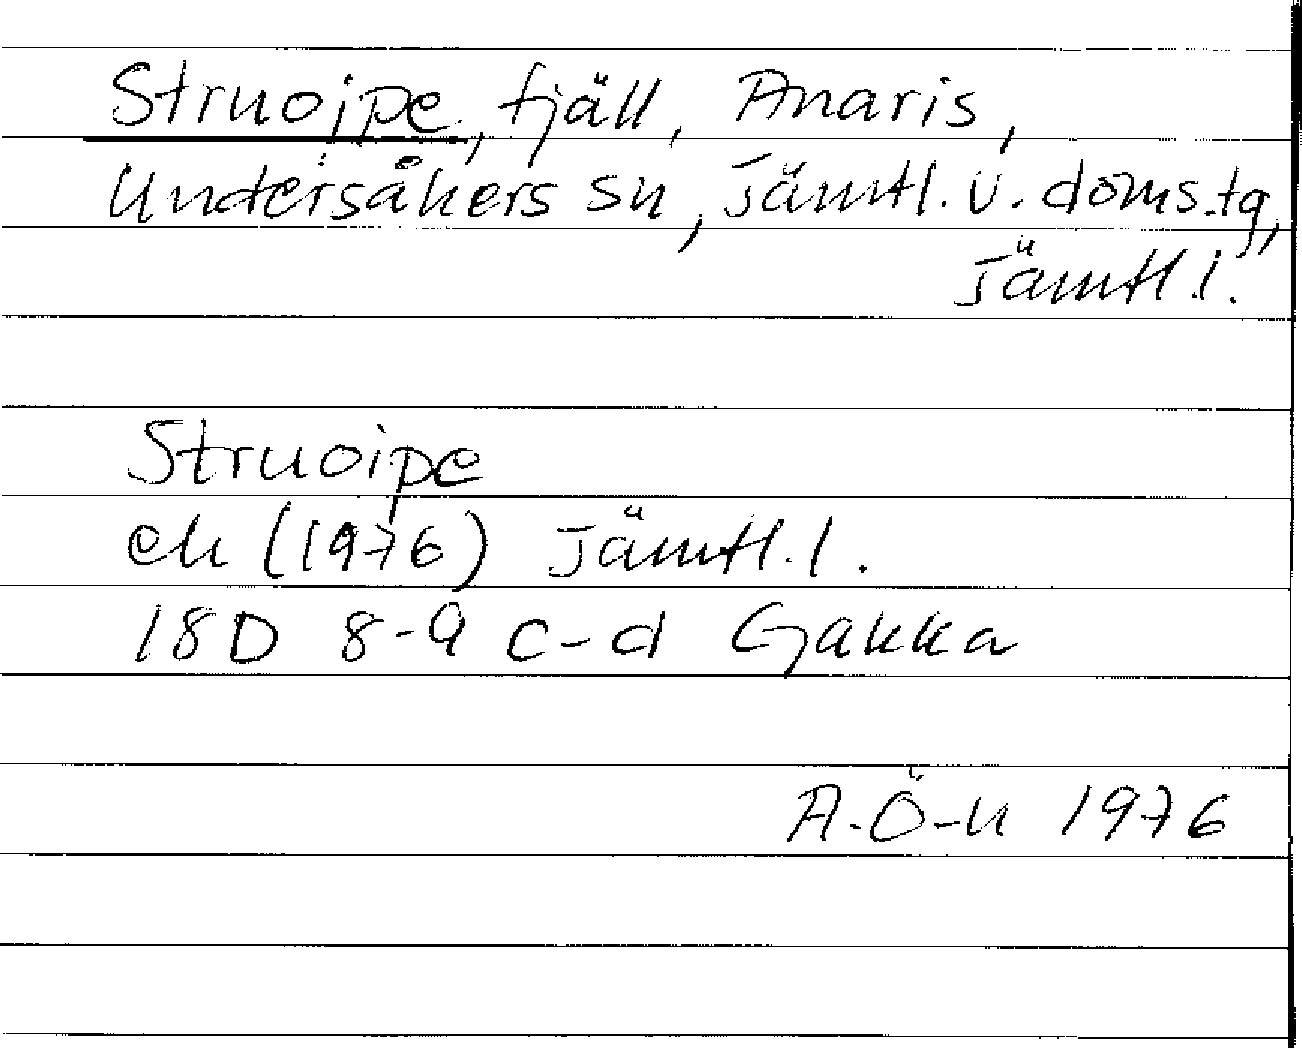 Struojpe, fjäll, Anaris,
Undersåkers sn, Jämtl. v. doms.tg,
Jämtl. l.
Struoipe
ek (1976) Jämtl. l.
18D 8-9 c-d Gjakka
A.Ö-n 1976